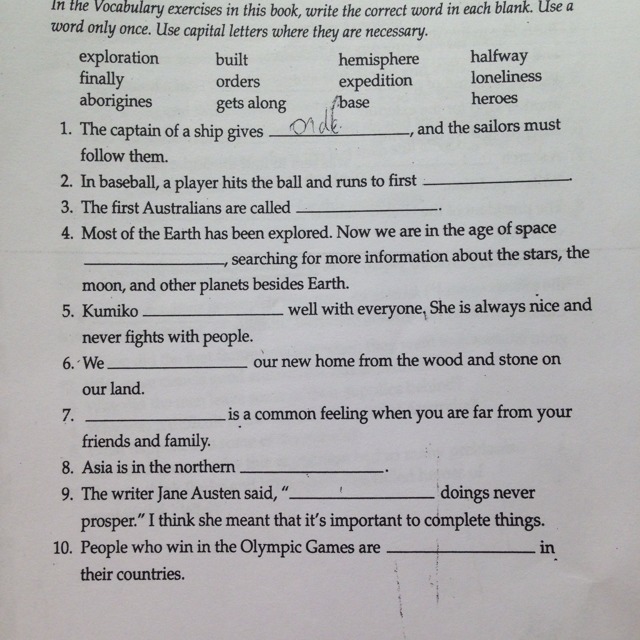 In the Vocabulary exercises in this book, write the correct word in each blank. Use a
word only once. Use capital letters where they are necessary.
exploration built hemisphere halfway
finally orders expedition loneliness
aborigines gets along base heroes
1. The captain of a ship gives ____________, and the sailors must
follow them.
2. In baseball, a player hits the ball and runs to first ____________.
3. The first Australians are called ____________.
4. Most of the Earth has been explored. Now we are in the age of space
____________, searching for more information about the stars, the
moon, and other planets besides Earth.
5. Kumiko ____________ well with everyone. She is always nice and
never fights with people.
6. We ____________ our new home from the wood and stone on
our land.
7. ____________ is a common feeling when you are far from your
friends and family.
8. Asia is in the northern ____________.
9. The writer Jane Austen said, "____________ doings never
prosper." I think she meant that it's important to complete things.
10. People who win in the Olympic Games are ____________ in
their countries.